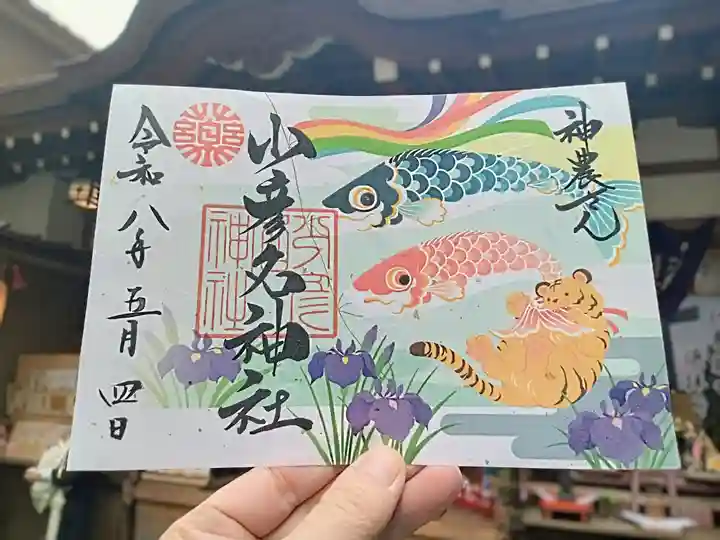 神農さん
少彦名神社
少彦名
神社
藥
令和八年五月四日